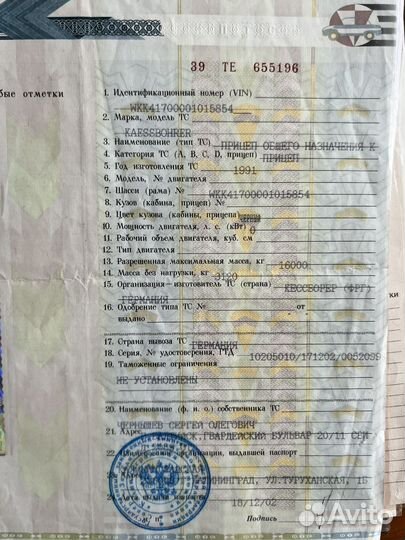 39 ТЕ 655196
бые отметки
1. Идентификационный номер (VIN)
WKK41700001015854
2. Марка, модель ТС
KAESSBOHRER
3. Наименование (тип ТС) ПРИЦЕП ОБЩЕГО НАЗНАЧЕНИЯ К
4. Категория ТС (А, В, С, D, прицеп) ПРИЦЕП
5. Год изготовления ТС 1991
6. Модель, № двигателя
7. Шасси (рама) № WKK41700001015854
8. Кузов (кабина, прицеп) №
9. Цвет кузова (кабины, прицепа)
10. Мощность двигателя, л. с. (кВт) 0
11. Рабочий объем двигателя, куб. см
12. Тип двигателя
13. Разрешенная максимальная масса, кг 16000
14. Масса без нагрузки, кг
15. Организация–изготовитель ТС (страна) КЕССБОРЕР (ФРГ)
ГЕРМАНИЯ
16. Одобрение типа ТС № от
выдано
17. Страна вывоза ТС ГЕРМАНИЯ
18. Серия, № удостоверения, ГТД 10205010/171202/0052099
19. Таможенные ограничения
НЕ УСТАНОВЛЕНЫ
20. Наименование (ф. и. о.) собственника ТС
ЧЕРНЫШЕВ СЕРГЕЙ ОЛЕГОВИЧ
21. Адрес ГВАРДЕЙСКИЙ БУЛЬВАР 20/11
22. организации, выдавшей паспорт
УЛ.ТУРУХАНСКАЯ, 1Б
18/12/02
М. П. Подпись
Avito